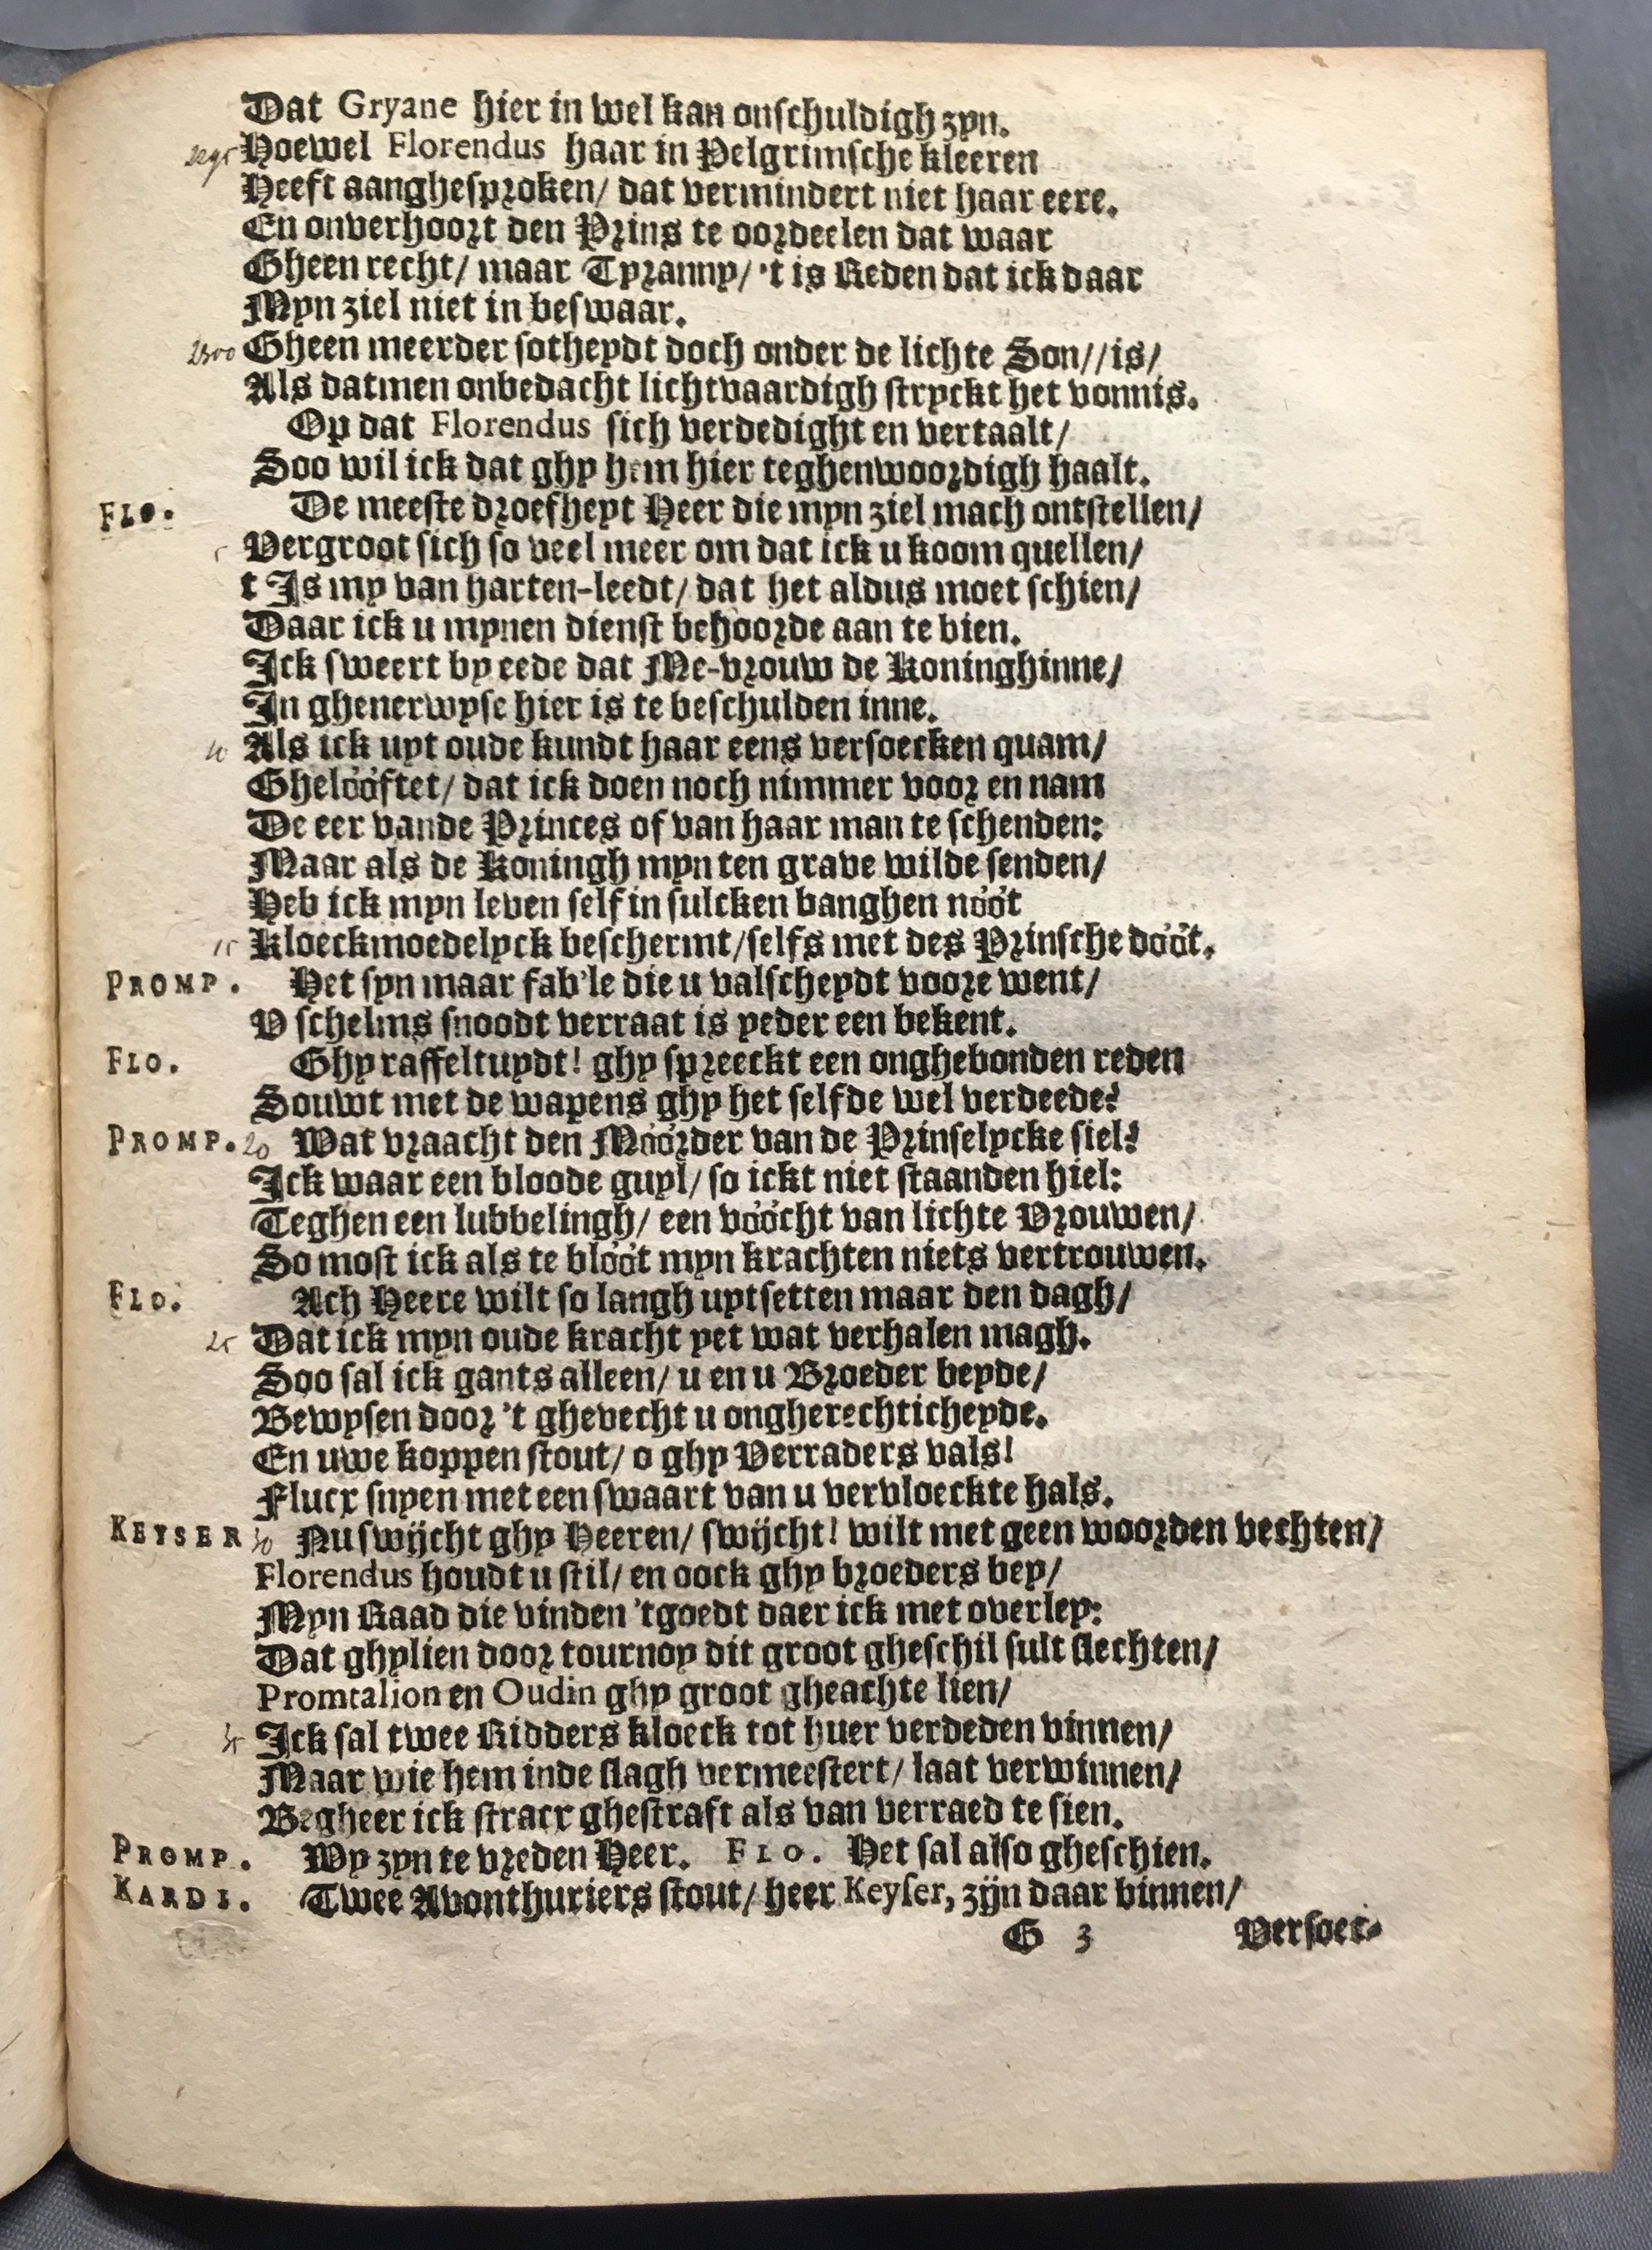 Dat Gryane hier in wel kan onschuldigh zyn.
2295 Hoewel Florendus haar in Pelgrimsche kleeren
Heeft aanghesproken/ dat vermindert niet haar eere.
En onverhoort den Prins te oordeelen dat waar
Gheen recht/ maar Tyranny/ 't is Reden dat ick daar
Myn ziel niet in beswaar.
2300 Gheen meerder sotheydt doch onder de lichte Son//is/
Als datmen onbedacht lichtvaardigh stryckt het vonnis.
Op dat Florendus sich verdedight en vertaalt/
Soo wil ick dat ghy hem hier teghenwoordigh haalt.
FLO. De meeste droefheyt Heer die myn ziel mach ontstellen/
5 Vergroot sich so veel meer om dat ick u koom quellen/
t Is my van harten-leedt/ dat het aldus moet schien/
Daar ick u mynen dienst behoorde aan te bien.
Ick sweert by eede dat Me-vrouw de Koninghinne/
In ghenerwyse hier is te beschulden inne.
10 Als ick uyt oude kundt haar eens versoecken quam/
Ghelóóftet/ dat ick doen noch nimmer voor en nam
De eer vande Princes of van haar man te schenden:
Maar als de Koningh myn ten grave wilde senden/
Heb ick myn leven self in sulcken banghen nóót
15 Kloeckmoedelyck beschermt/selfs met des Prinsche dóót.
PROMP. Het syn maar fab'le die u valscheydt voore went/
V schelms snoodt verraat is yeder een bekent.
FLO. Ghy raffeltuydt! ghy spreeckt een onghebonden reden
Souwt met de wapens ghy het selfde wel verdeede?
PROMP. 20 Wat vraacht den Móórder van de Prinselycke siel?
Ick waar een bloode guyl/ so ickt niet staanden hiel:
Teghen een lubbelingh/ een vóócht van lichte Vrouwen/
So most ick als te blóót myn krachten niets vertrouwen.
FLO. Ach Heere wilt so langh uytsetten maar den dagh/
25 Dat ick myn oude kracht yet wat verhalen magh.
Soo sal ick gants alleen/ u en u Broeder beyde/
Bewysen door 't ghevecht u ongherechticheyde.
En uwe koppen stout/ o ghy Verraders vals!
Flucx snyen met een swaart van u vervloeckte hals.
KEYSER 30 Nu swijcht ghy Heeren/ swijcht! wilt met geen woorden vechten/
Florendus houdt u stil/ en oock ghy broeders bey/
Myn Raad die vinden 'tgoedt daer ick met overley:
Dat ghylien door tournoy dit groot gheschil sult slechten/
Promtalion en Oudin ghy groot gheachte lien/
35 Ick sal twee Ridders kloeck tot huer verdeden vinnen/
Maar wie hem inde slagh vermeestert/ laat verwinnen/
Begheer ick stracx ghestraft als van verraed te sien.
PROMP. Wy zyn te vreden Heer. FLO. Het sal also gheschien.
KARDI. Twee Avonthuriers stout/ heer Keyser, zijn daar binnen/
G 3 Versoec-